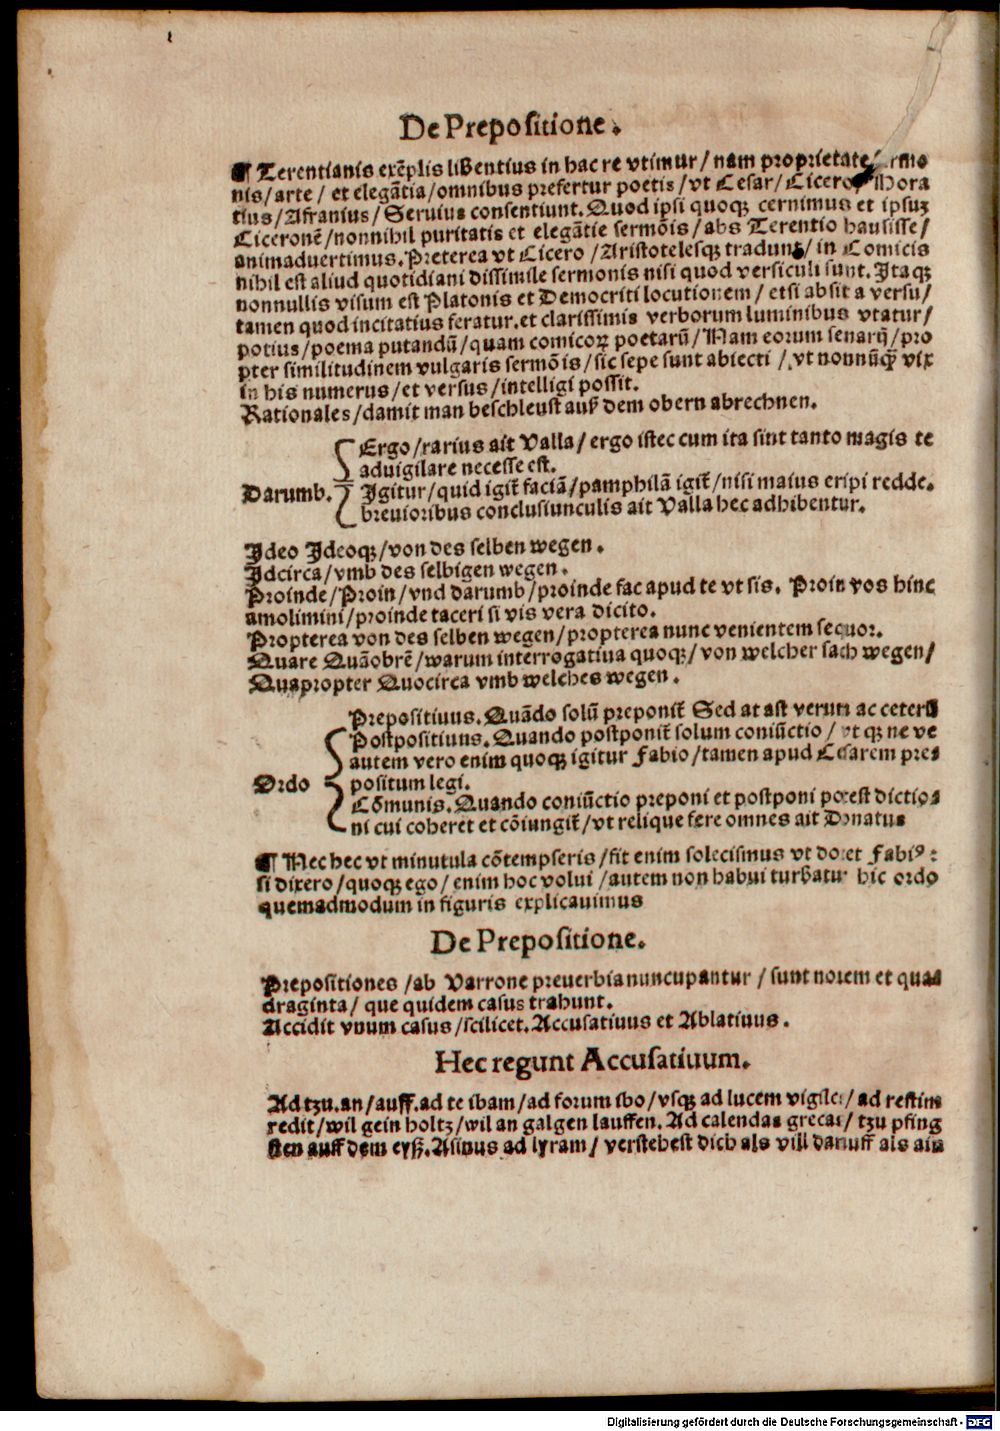 De Prepositione.
¶ Terentianis exẽplis libentius in hac re vtimur/ nam proprietate
nis/ arte / et elegãtia/omnibus prefertur poetis /vt Cesar/ Cicero/ Hora
tius/Afranius/ Seruius consentiunt. Quod ipsi quoqꝫ cernimus et ipsuꝫ
Ciceronẽ/nonnihil puritatis et elegãtie sermõis/abs Terentio hausisse/
animaduertimus. Preterea vt Cicero /Aristotelesqꝫ tradunt/ in Comicis
nihil est aliud quotidiani dissimile sermonis nisi quod versiculi sunt. Itaqꝫ
nonnullis visum est Platonis et Democriti locutionem / etsi absit a versu/
tamen quod incitatius feratur. et clarissimis verborum luminibus vtatur/
potius/poema putandũ/quam comicoꝝ poetarũ/Nam eorum senarij/pro
pter similitudinem vulgaris sermõis/sic sepe sunt abiecti /vt nonnũqꝫ vix
in his numerus/et versus/intelligi possit.
Rationales/damit man beschleust auß dem obern abrechnen.
Ergo/rarius ait Valla/ ergo istec cum ita sint tanto magis te
aduigilare necesse est.
Darumb. Igitur/quid igit̃ faciã/pamphilã igit̃/nisi maius eripi redde.
breuioribus conclusiunculis ait Valla hec adhibentur.
Ideo Ideoqꝫ/von des selben wegen.
Idcirca/vmb des selbigen wegen.
Proinde/Proin/vnd darumb/proinde fac apud te vt sis. Proin vos hinc
amolimini/proinde taceri si vis vera dicito.
Propterea von des selben wegen/propterea nunc venientem sequor.
Quare Quãobrẽ/warum interrogatiua quoqꝫ/von welcher sach wegen/
Quapropter Quocirca vmb welches wegen.
Prepositiuus. Quãdo solũ preponit̃ Sed at ast verum ac ceterũ
Postpositiuus. Quando postponit̃ solum coniũctio/ vt qꝫ ne ve
autem vero enim quoqꝫ igitur Fabio/tamen apud Cesarem pre⸗
Ordo positum legi.
Cõmunis. Quando coniũctio preponi et postponi potest dictio⸗
ni cui coheret et cõiungit̃/vt relique fere omnes ait Donatus
¶ Nec hec vt minutula cõtempseris/fit enim solecismus vt docet Fabiꝰ:
si dixero/quoqꝫ ego/enim hoc volui /autem non habui turbatur hic ordo
quemadmodum in figuris explicauimus
De Prepositione.
Prepositiones /ab Varrone preuerbia nuncupantur / sunt nouem et qua⸗
draginta/ que quidem casus trahunt.
Accidit vnum casus/scilicet. Accusatiuus et Ablatiuus.
Hec regunt Accusatiuum.
Ad tzu. an/auff. ad te ibam/ad forum ibo/vsqꝫ ad lucem vigiles/ ad restim
redit/wil gein holtz/wil an galgen lauffen. Ad calendas grecas/ tzu pfing
sten auff dem eyß. Asinus ad lyram/ verstehest dich als vill daruff als ain
Digitalisierung gefördert durch die Deutsche Forschungsgemeinschaft - DFG